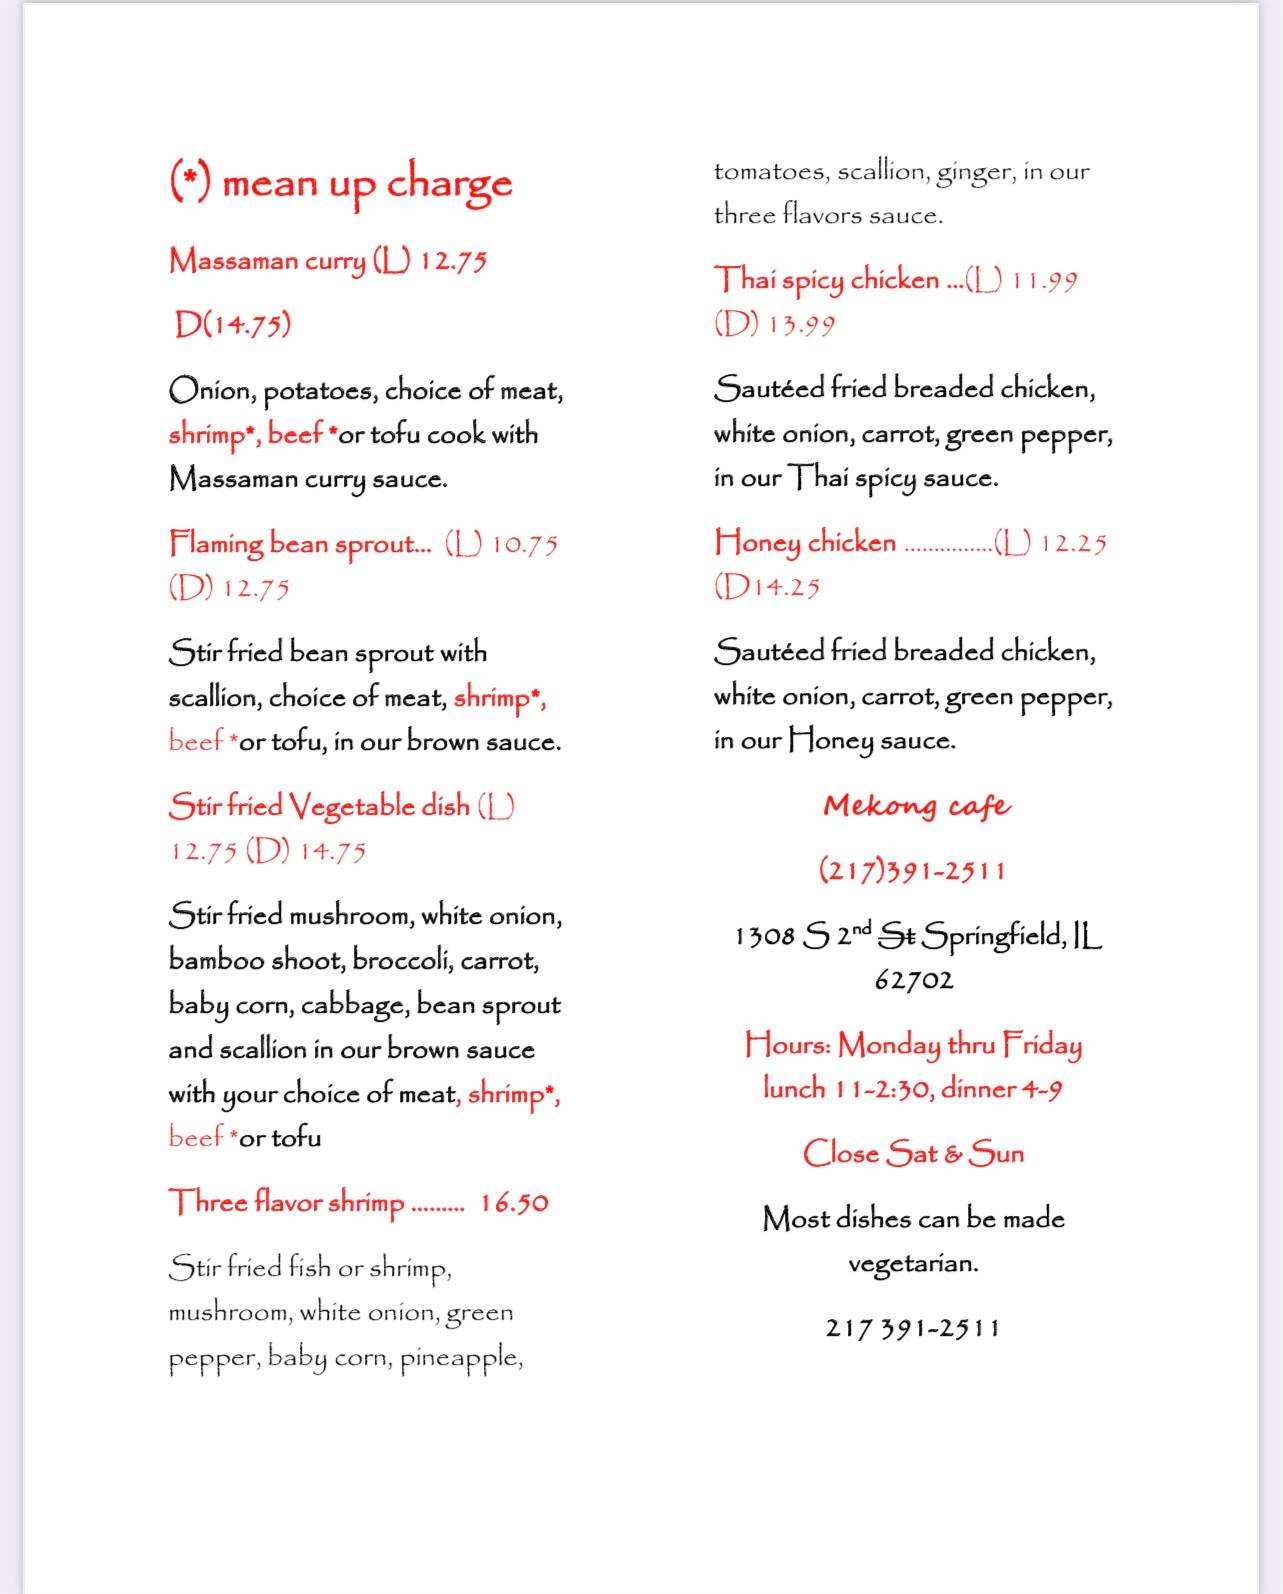 (*) mean up charge
Massaman curry (L) 12.75
D(14.75)
Onion, potatoes, choice of meat,
shrimp*, beef *or tofu cook with
Massaman curry sauce.
Flaming bean sprout... (L) 10.75
(D) 12.75
Stir fried bean sprout with
scallion, choice of meat, shrimp*,
beef *or tofu, in our brown sauce.
Stir fried Vegetable dish (L)
12.75 (D) 14.75
Stir fried mushroom, white onion,
bamboo shoot, broccoli, carrot,
baby corn, cabbage, bean sprout
and scallion in our brown sauce
with your choice of meat, shrimp*,
beef *or tofu
Three flavor shrimp ......... 16.50
Stir fried fish or shrimp,
mushroom, white onion, green
pepper, baby corn, pineapple,
tomatoes, scallion, ginger, in our
three flavors sauce.
Thai spicy chicken ...(L) 11.99
(D) 13.99
Sautéed fried breaded chicken,
white onion, carrot, green pepper,
in our Thai spicy sauce.
Honey chicken ...............(L) 12.25
(D14.25
Sautéed fried breaded chicken,
white onion, carrot, green pepper,
in our Honey sauce.
Mekong cafe
(217)391-2511
1308 S 2nd St Springfield, IL
62702
Hours: Monday thru Friday
lunch 11-2:30, dinner 4-9
Close Sat & Sun
Most dishes can be made
vegetarian.
217 391-2511